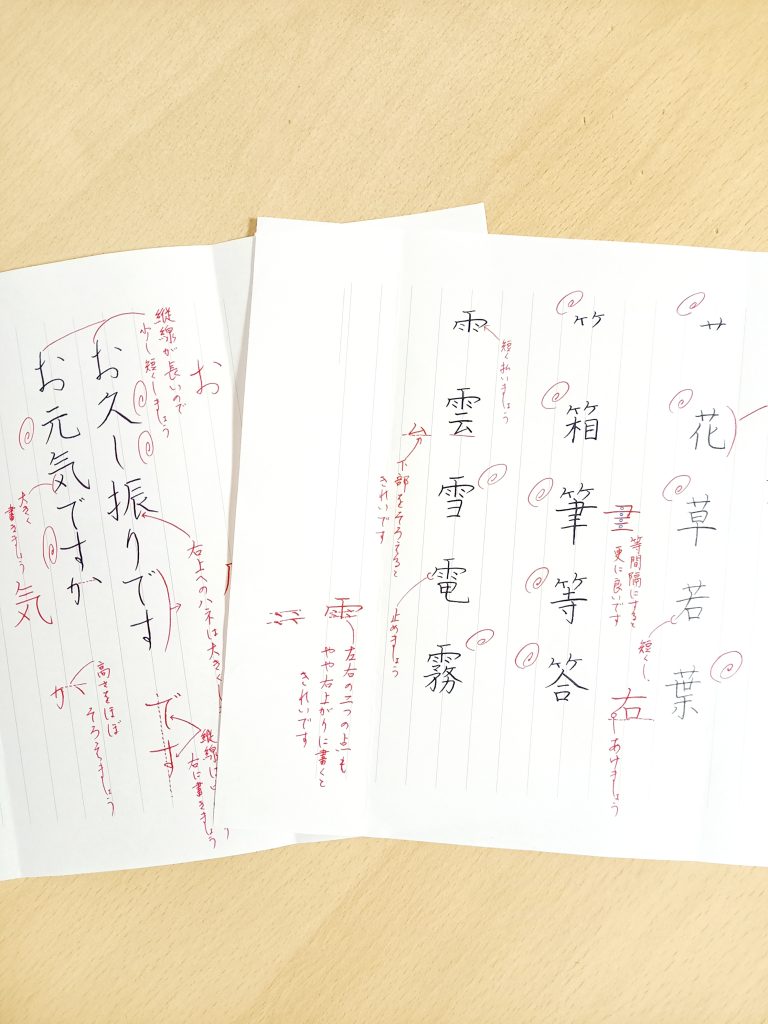 艹
花
草
若
葉
短く
右
あけましょう
等間隔にすると
更に良いです
⺮
箱
筆
等
答
雨
雲
雪
電
霧
短く払いましょう
下部をそろえると
きれいです
止めましょう
雨
左右の二つの点も
やや右上がりに書くと
きれいです
お
縦線が長いので
少し短くしましょう
お久し振りです
お元気ですか
右上へのハネは大きくし
大きく
書きましょう
気
です
縦線
右に書きましょう
か
高さをほぼ
そろえましょう